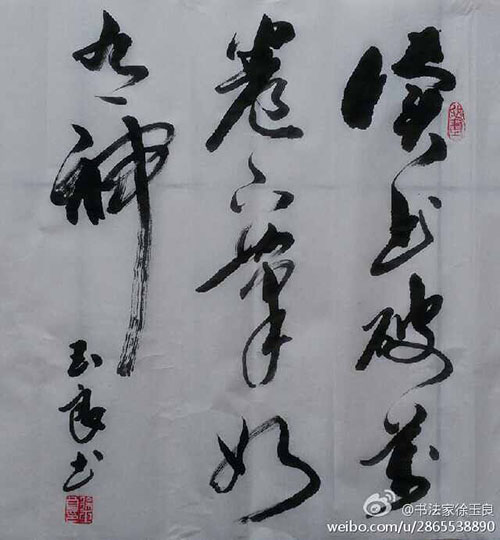 讀书破萬
卷下筆如
有神
玉良书
@书法家徐玉良
weibo.com/u/2865538890